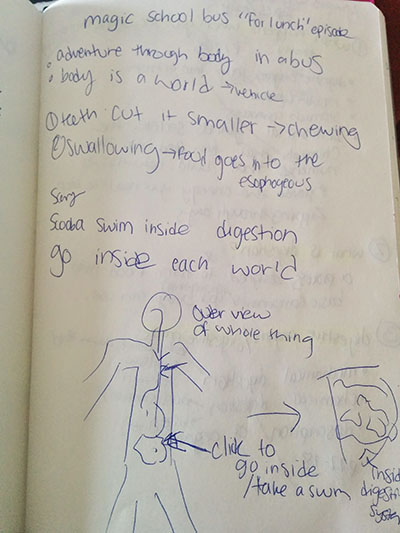 magic school bus "For lunch" episode
• adventure through body in a bus
• body is a world → vehicle
① teeth cut it smaller → chewing
② swallowing → food goes into the
esophogeous
Scooba swim inside digestion
go inside each world
over view
of whole thing
click to
go inside
/take a swm
inside
digestive
system